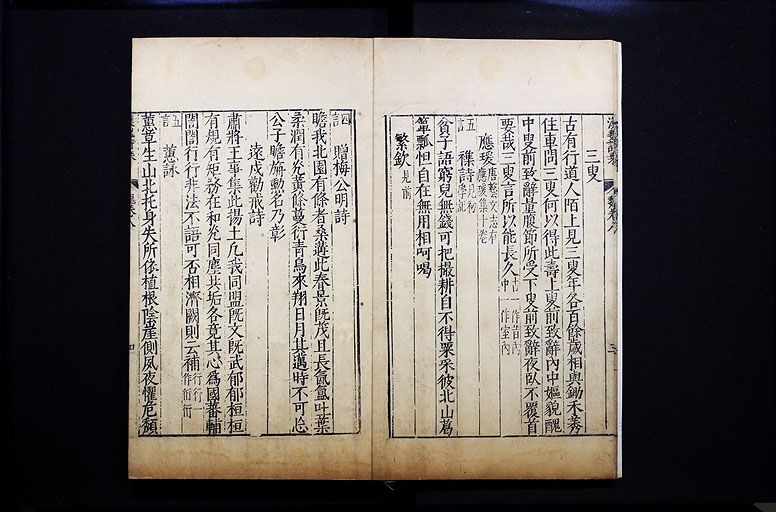 三叟
古有行道人陌上見三叟年各百餘歲相與鋤禾莠
住車問三叟何以得此壽上叟前致辭內中嫗貌醜
中叟前致辭量腹節所受下叟前致辭夜臥不覆首
要哉三叟言所以能長久十一作昔內中一作室內
應璩唐藝文志有應璩集十卷
雜詩見初學記
五言
貧子語窮兒無錢可把撮耕自不得粟采彼北山葛
簞瓢恒自在無用相呵喝
繁欽見前
贈梅公明詩
四言
瞻我北園有條者桑遘此春景既茂且長氤氲吐葉
柔潤有光黃條蔓衍青鳥來翔日月其邁時不可忘
公子瞻旃勳名乃彰
遠戍勸戒詩
肅將王事集此揚土凡我同盟既文既武郁郁桓桓
有規有矩務在和光同塵共垢各竟其心為國蕃輔
誾誾行行非法不語可否相濟闕則云補行行一作衎衎
蕙詠
五言
蕙草生山北托身失所依植根陰崖側夙夜懼危頹